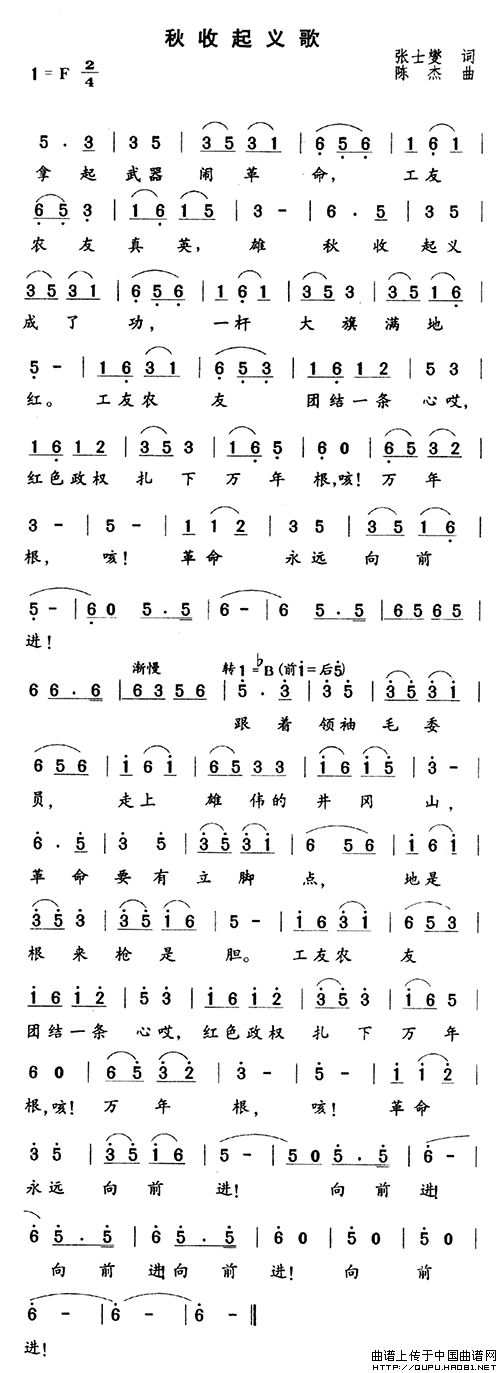 秋收起义歌
张士燮 词
1=F 2/4
陈杰 曲
5 . 3 | 3 5 | 3 5 3 1 | 6 5 6 | 1 6 1 |
拿起武器闹革命，工友
6 5 3 | 1 6 1 5 | 3 - | 6 . 5 | 3 5 |
农友真英，雄秋收起义
3 5 3 1 | 6 5 6 | 1 6 1 | 3 5 3 | 3 5 1 6 |
成了功，一杆大旗满地
5 - | 1 6 3 1 | 6 5 3 | 1 6 1 2 | 5 3 |
红。工友农友团结一条心哎，
1 6 1 2 | 3 5 3 | 1 6 5 | 6 0 | 6 5 3 2 |
红色政权扎下万年根，咳！万年
3 - | 5 - | 1 1 2 | 3 5 | 3 5 1 6 |
根，咳！革命永远向前
5 - | 6 0 5 . 5 | 6 - | 6 5 . 5 | 6 5 6 5 |
进！
渐慢 转1=♭B（前1=后5）
6 6 . 6 | 6 3 5 6 | 5 . 3 | 3 5 | 3 5 3 1 |
跟着领袖毛委
6 5 6 | 1 6 1 | 6 5 3 3 | 1 6 1 5 | 3 - |
员，走上雄伟的井冈山，
6 . 5 | 3 5 | 3 5 3 1 | 6 5 6 | 1 6 1 |
革命要有立脚点，地是
3 5 3 | 3 5 1 6 | 5 - | 1 6 3 1 | 6 5 3 |
根来枪是胆。工友农友
1 6 1 2 | 5 3 | 1 6 1 2 | 3 5 3 | 1 6 5 |
团结一条心哎，红色政权扎下万年
6 0 | 6 5 3 2 | 3 - | 5 - | 1 1 2 |
根，咳！万年根，咳！革命
3 5 | 3 5 1 6 | 5 - | 5 0 5 . 5 | 6 - |
永远向前进！向前进
6 5 . 5 | 6 5 . 5 | 6 - | 6 0 | 5 0 | 5 0 |
向前进向前进！向前
6 - | 6 - | 6 - ‖
进！
曲谱上传于中国曲谱网
http://QUPU.HAO81.NET